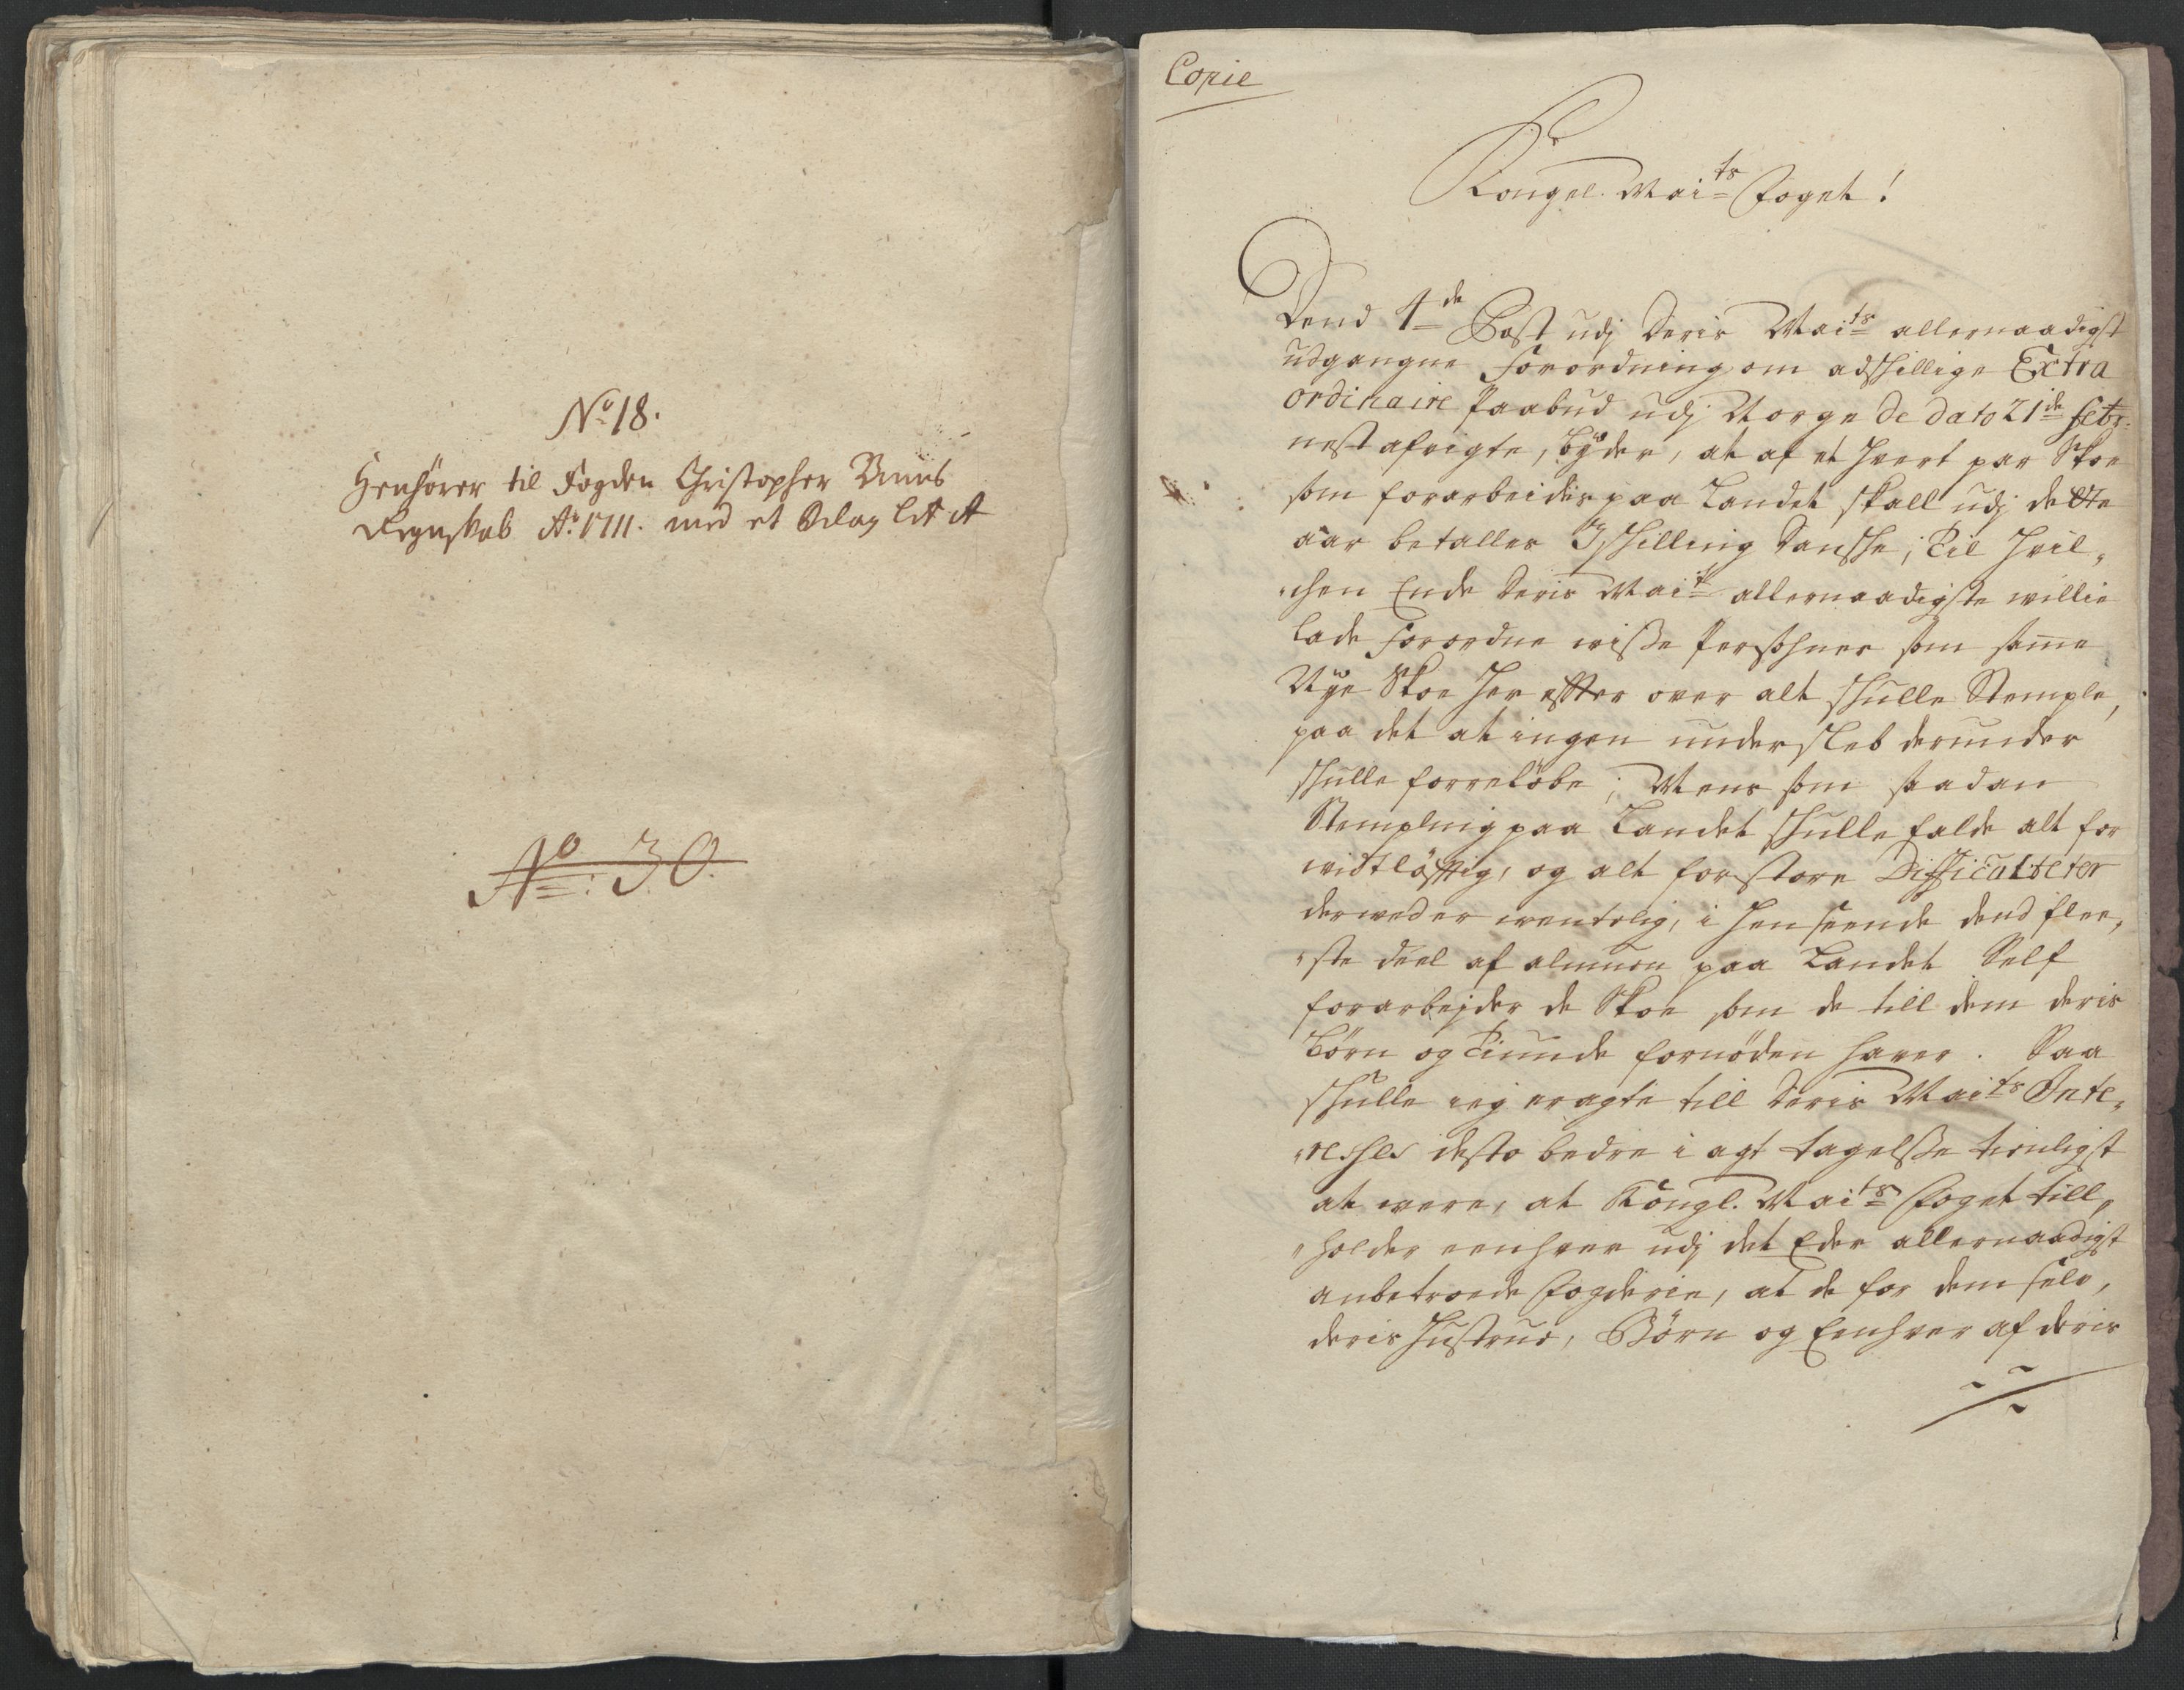 No 18.
Henhører til Fogden Christopher
Regnskab Ao 1711. med et Bilag Lit A
No: 30.
Copie
Kongel. Maits Foget!
Dend 4de Post udj Deris Maits allernaadigst
udgangne Forordning om adskillige Extra
ordinaire Paabud udj Norge de dato 21de Febr.
nest afvigte, byder, at af et hvert par Skoe
som forarbeides paa Landet skall udj dette
aar betalles 3 skilling Danske; Til hvil-
-chen Ende Deris Mait allernaadigste willie
lade forordne wisse Persohner som same
Nye Skoe her effter over alt skulle Stemple,
paa det at ingen undersleb derunder
skulle forreløbe; Mens som saadan
Stemplnig paa Landet skulle falde alt for
widtløfftig, og alt for store Difficulteter
derwed er wentelig, i henseende dend flee-
-ste deel af almuen paa Landet Self
forarbejder de Skoe som de till dem deris
børn og Tiunde fornøden haver. Saa
skulle ieg eragte till Deris Maits Inte-
-resses desto bedre i agt tagelsse tienligst
at were, at Kongl. Maits Foget till-
-holder eenhver udj det Eder allernaadigst
anbetroede Fogderie, at de for dem selv,
deris Hustrue, Børn og Eenhver af deris